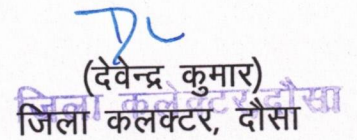 (देवेन्द्र कुमार)
जिला कलेक्टर दौसा
जिला कलक्टर, दौसा